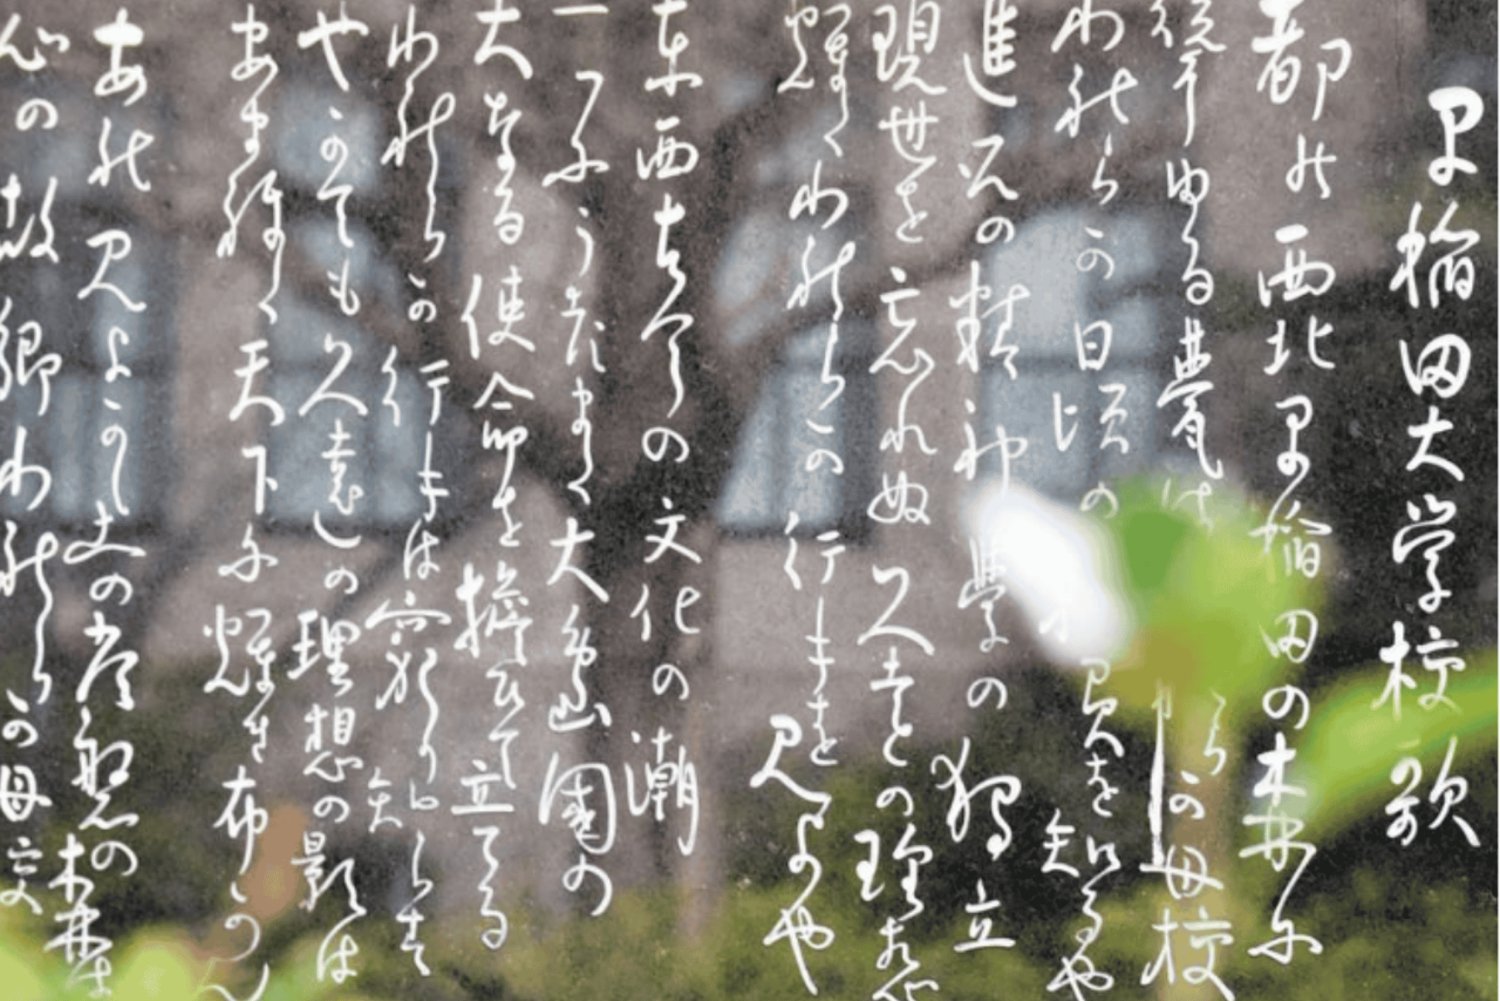 早稲田大学校歌
都の西北早稲田の森に
聳ゆる甍は らの母校
われらか日頃の 負を知るや
進取の精神學の獨立
現世を忘れぬ久遠の理想
輝くわれらか行手を見よや
東西古今の文化の潮
一つにうつまく大島國の
大なる使命を擔ひて立てる
われらか行手は窮り知らす
やかても久遠の理想の影は
あまねく天下に輝き布かん
あれ見よかしこの常磐の森は
心の故郷われらか母校